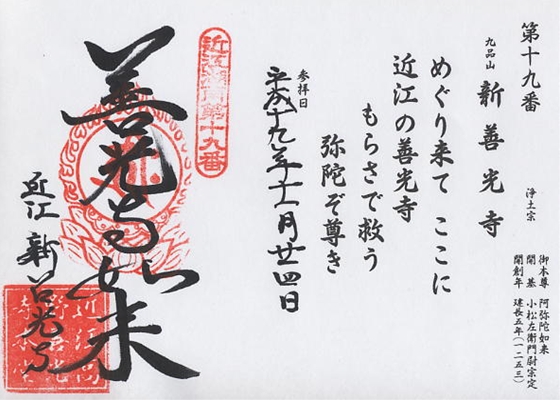 第十九番
九品山 新善光寺 浄土宗
御本尊 阿弥陀如来
開基 小松左衛門尉宗定
開創年 建長五年(一二五三)
めぐり来て ここに
近江の善光寺
もらさで救う
弥陀ぞ尊き
参拝日
平成十九年十一月廿四日
近江湖南第十九番
善光寺如来
近江 新善光寺